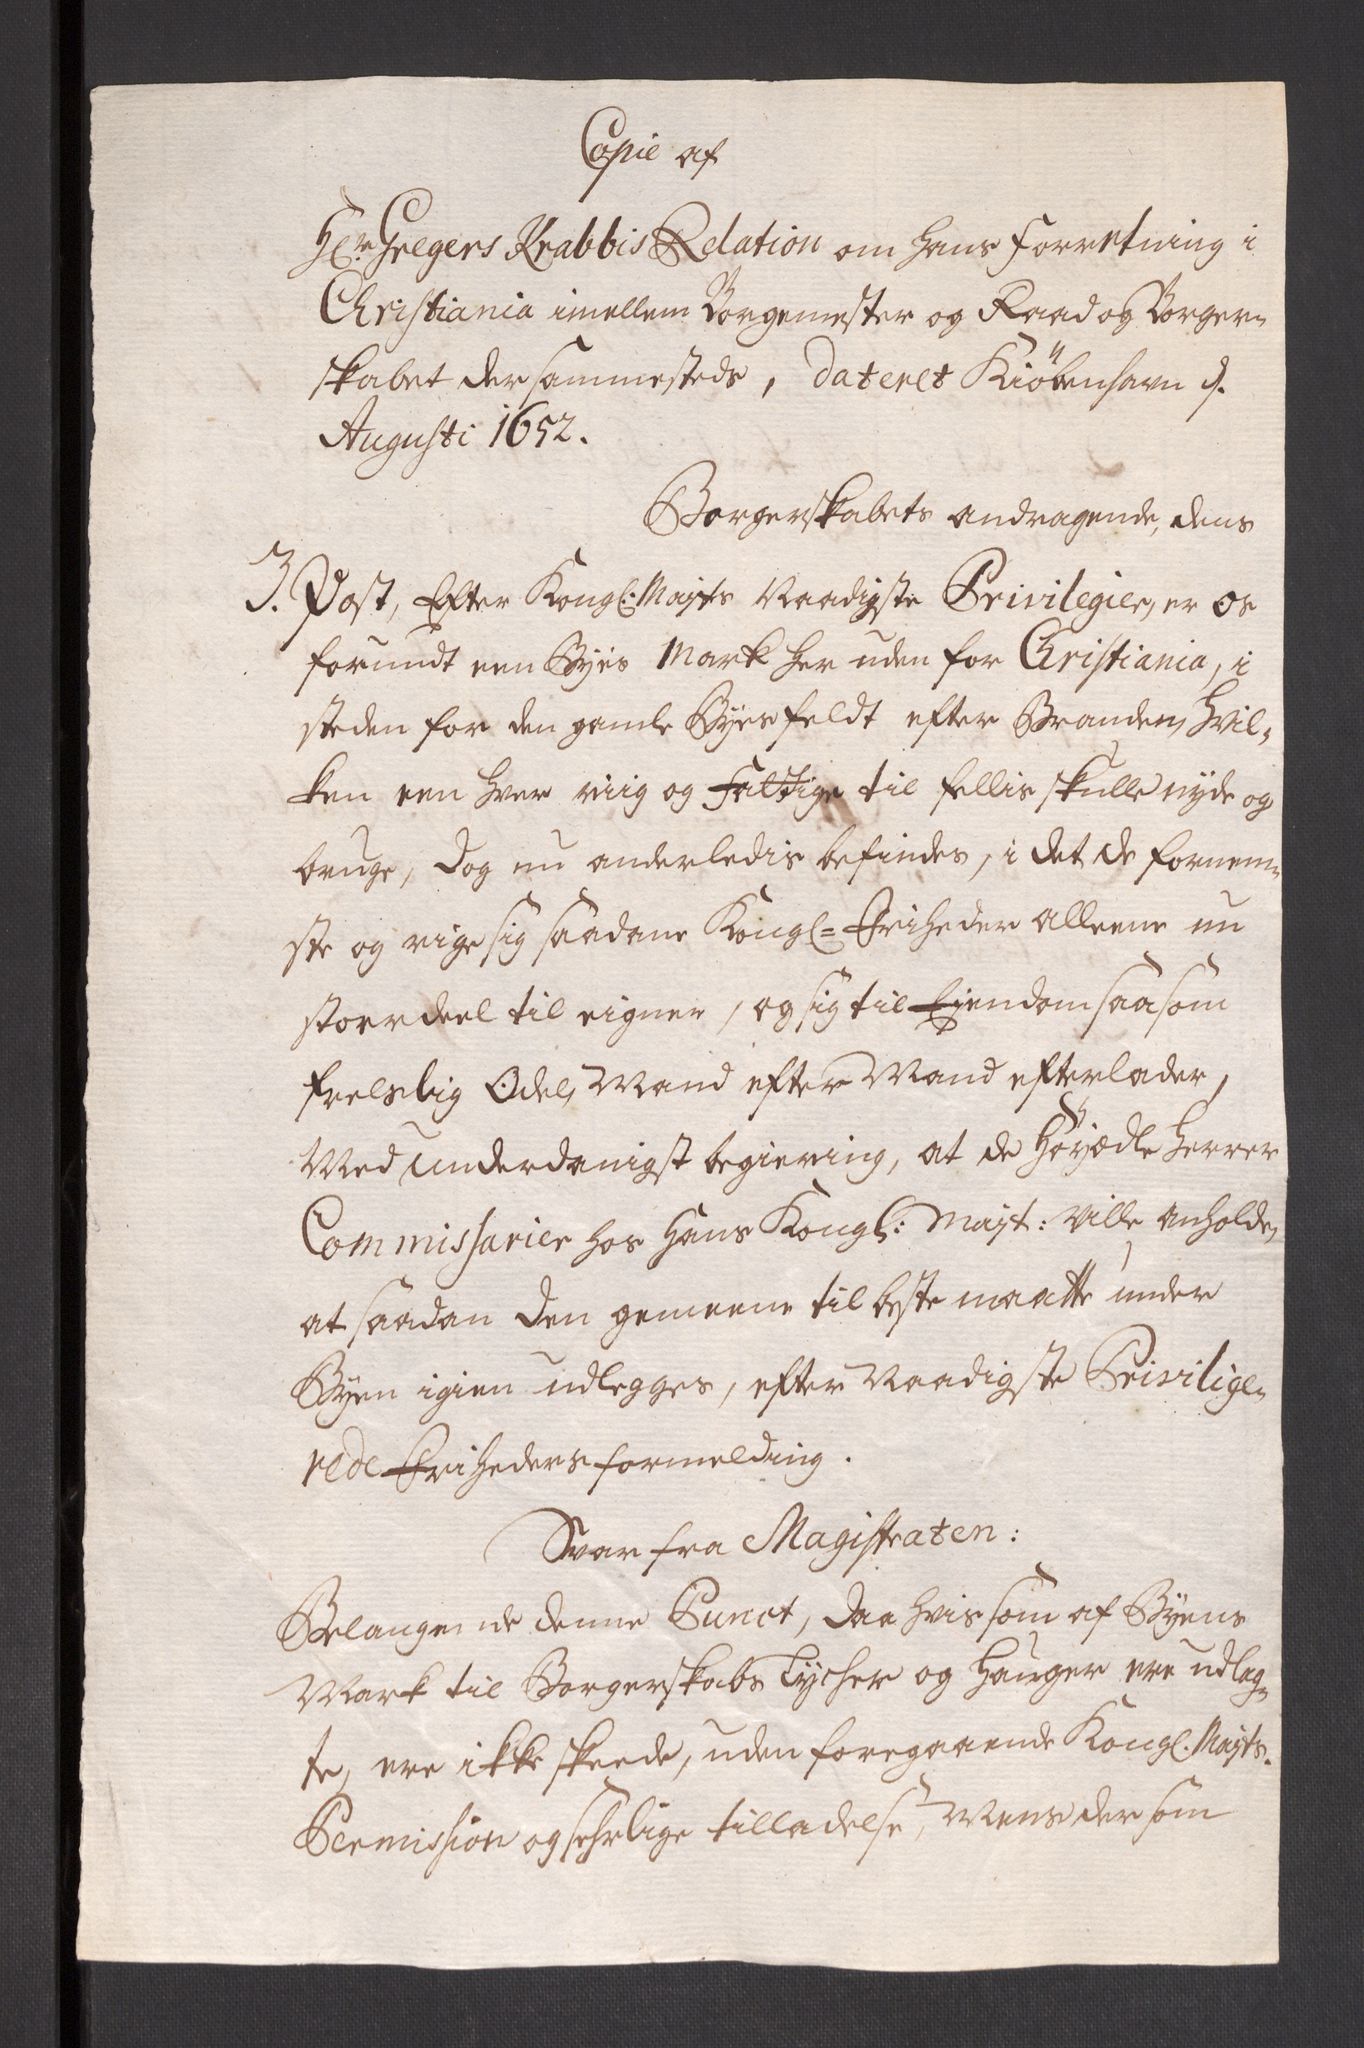 Copie af
Hr. Gregers Krabbis Relation om hans forretning i
Christiania imellem Borgemester og Raad og Borger-
skabet der sammesteds, dateret Kiöbenhavn d.
Augusti 1652.
Borgerskabets andragende, dens
3. Post, Efter Kongl: Mayts Naadigste Privilegier, er os
forundt een Byes Mark her uden for Christiania, i
steden for den gamle Byes feldt efter Branden, hvil-
ken een hver riig og fattige til fellis skulle nyde og
bruge, dog nu anderledis befindes, i det de fornem-
ste og rige sig saadane Kongl= Friheder alleene nu
stoerdeel til eigner, og sig til Ejendom saasom
frelslig Odel, Mand efter Mand efterlader,
Med underdanigst begiering, at de Höyædle Herrer
Commissarier hos Hans Kongl: Mayt: ville anholde,
at saadan den gemeene til beste maatte under
Byen igien udlegges, efter Naadigste Privilige-
rede Friheders formelding.
Svar fra Magistraten:
Belangende denne Punct, daa hvis som af Byens
Mark til Borgerskabs Lycher og Hauger ere udlag-
te, ere ikke skeede, uden foregaaende Kongl. Mayts.
Permission og sehrlige tilladelse, Mens der som